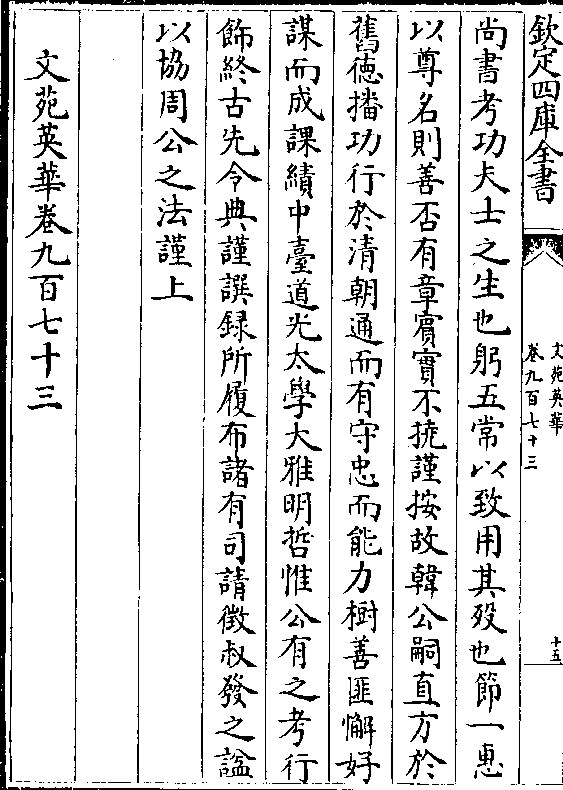 欽定四庫全書
文苑英華
卷九百七十三
十五
尚書考功夫士之生也躬五常以致用其歿也節一惠
以尊名則善否有章賔實不撓謹按故韓公嗣直方於
舊德播功行於清朝通而有守忠而能力樹善匪懈好
謀而成課績中臺道光太學大雅明哲惟公有之考行
飾終古先令典謹譔録所履布諸有司請徵叔發之諡
以協周公之法謹上
文苑英華卷九百七十三